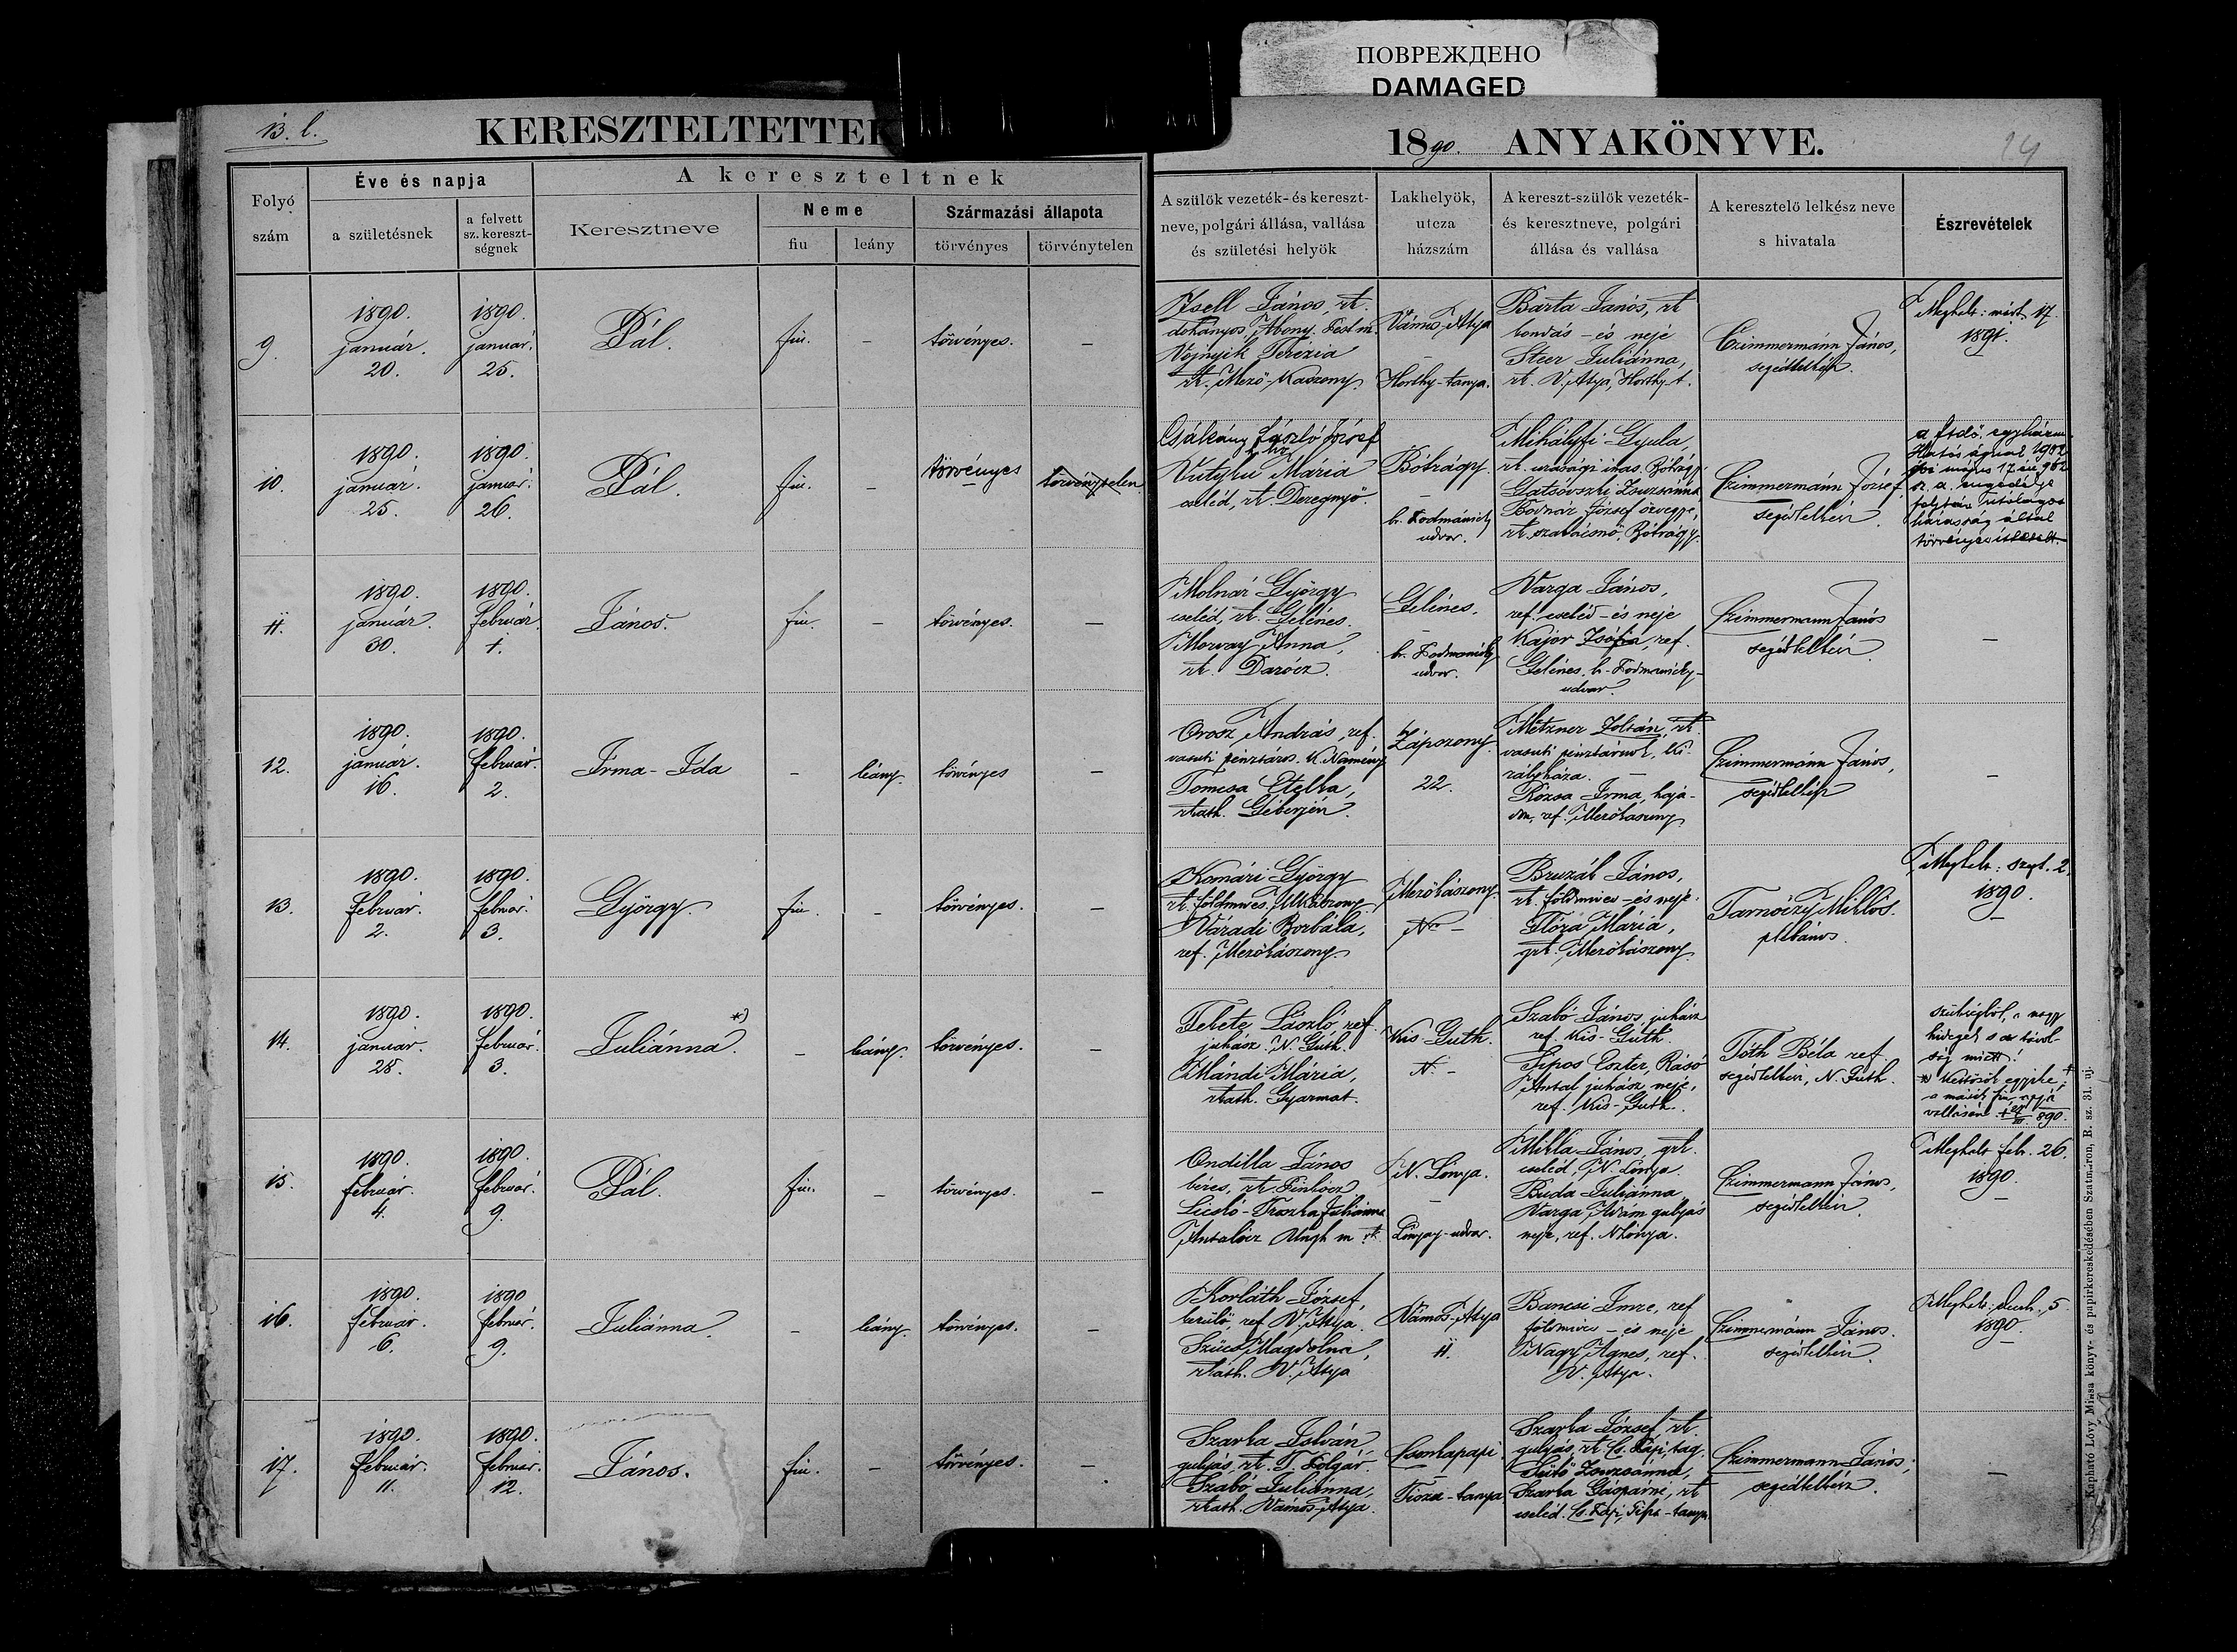 ПОВРЕЖДЕНО
DAMAGED
13. l.
KERESZTELTETTEK
1890. ANYAKÖNYVE.
Folyó
szám
Éve és napja
a születésnek
a felvett
sz. kereszt-
ségnek
A kereszteltnek
Keresztneve
Neme
fiu
leány
Származási állapota
törvényes
törvénytelen
A szülők vezeték- és kereszt-
neve, polgári állása, vallása
és születési helyök
Lakhelyök,
utcza
házszám
A kereszt-szülők vezeték-
és keresztneve, polgári
állása és vallása
A keresztelő lelkész neve
s hivatala
Észrevételek
9.
1890.
január.
20.
1890.
január.
25.
Pál.
fiu.
–
törvényes.
–
János, rt.
dohányos,
Terézia
rt. Mező-Kaszony.
Vámos-Atya
–
Horthy-tanya.
Barta János, rt
kondás – és neje
Steer Juliánna,
rt. V. Atya, Horthy-t.
Czimmermánn János,
segédlelkész.
Meghalt: márt. 17.
1891.
10.
1890.
január.
25.
1890.
január.
26.
Pál.
fiu.
–
törvényes
törvénytelen
Csákány László József
Mária
cseléd, rt. Deregnyő.
Bótrágy.
–
br. Podmaniczky
udvar.
Mihályfi Gyula,
rt. urasági inas. Bótrágy.
Zsuzsánna
Bodnár József özvegye,
rt. szakácsnő, Bótrágy.
Czimmermánn József,
segédlelkész.
törvényesíttetett.
11.
1890.
január.
30.
1890.
február
1.
János.
fiu.
–
törvényes.
–
Molnár György
cseléd, rt. Gelénes.
Morvay Anna,
rt. Darócz.
Gelénes.
–
br. Podmaniczky
udvar.
Varga János,
ref. cseléd – és neje
Major Zsófia, ref.
Gelénes, br. Podmaniczky-
udvar.
Czimmermann János
segédlelkész.
–
12.
1890.
január.
16.
1890.
február.
2.
Irma-Ida
–
leány.
törvényes
–
Orosz András, ref.
vasuti pénztáros. K. Namény
Tomcsa Etelka,
rkath. Géberjén.
Zápszony.
22.
Metzner Zoltán, rt.
vasuti pénztárnok, Ki-
rályháza. –
Rózsa Irma, haja-
don, ref. Mezőkaszony
Czimmermánn János,
segédlelkész
–
13.
1890.
február.
2.
1890.
február.
3.
György.
fiu.
–
törvényes.
–
Komári György
rt. földmives, Mkaszony.
Váradi Borbála,
ref. Mezőkászony.
Mezőkászony.
No –
Bruzák János,
rt. földmives – és neje.
Flóra Mária,
grt. Mezőkászony.
Tarnóczy Miklós.
plébános.
Meghalt: szept. 2.
1890.
–
14.
1890.
január.
28.
1890.
február.
3.
Juliánna. *)
–
leány.
törvényes.
–
Fekete László ref.
juhász N. Guth.
Mándi Mária,
rkath. Gyarmat.
Kis Guth.
N. –
Szabó János, juhász
ref. Kis-Guth.
Sipos Eszter, Rásó
Antal juhász neje,
ref. Kis-Guth.
Tóth Béla ref.
segédlelkész, N. Guth.
szükségből, a nagy
hidegek s a távol-
ság miatt!
*) Kettősök egyike;
a másik fiu apja
vallásán
15.
1890.
február.
4.
1890.
február.
9.
Pál.
fiu.
–
törvényes.
–
Ondilla János
béres, rt.
Juliánna
Antalócz Ungh m. rt.
N. Lónya.
–
Lónyay-udvar.
Mikla János, grt.
cseléd, N. Lónya.
Buda Juliánna
Varga Ádám gulyás
neje, ref. N Lónya.
Czimmermann János,
segédlelkész.
Meghalt febr. 26.
1890.
–
16.
1890.
február.
6.
1890
február.
9.
Juliánna.
–
leány.
törvényes.
–
Korláth József,
kerülő, ref. V. Atya.
Szücs Magdolna,
rkath. V. Atya
Vámos-Atya
11.
Bancsi Imre, ref
földmives – és neje
Nagy Ágnes, ref.
V. Atya.
Czimmermánn János.
segédlelkész.
Meghalt: decb. 5.
1890.
–
17.
1890.
február.
11.
1890.
február.
12.
János.
fiu.
–
törvényes.
–
Szarka István,
gulyás, rt. T.
Szabó Juliánna,
rkath. Vámos-Atya.
Csonkapapi.
–
Tisza-tanya
Szarka József, rt.
gulyás, rt Cs. Papi, tag.
Sütő Zsuzsánna,
Szarka Gáspárné, rt
cseléd. Cs. Papi, Tisza-tanya.
Czimmermann János,
segédlelkész.
–
Kapható Lővy Miksa könyv- és papirkereskedésében Szatmáron, R. sz. 31. uj.